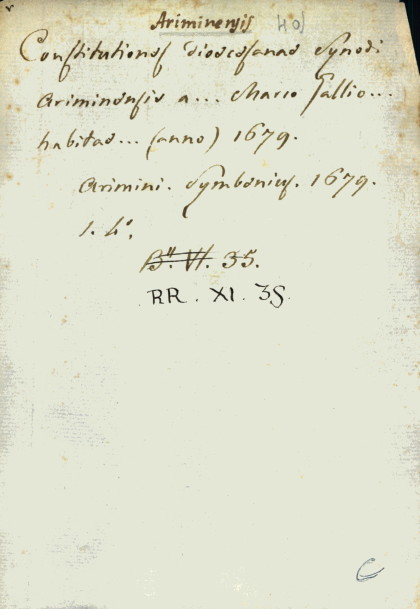 Ariminensis 40
Constitutiones dioecesanae Synodi
Ariminensis a... Marco Gallio...
habitae... (anno) 1679.
Arimini. Symbenius. 1679.
1. 4°.
VI. 35.
RR. XI. 35.
C